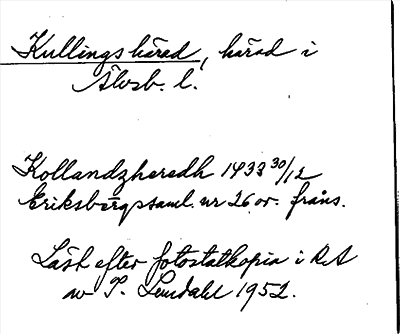 Kullings härad, härad i
Älvsb. l.
Kollandzheredh 1433 30/12
Eriksbergssaml. nr 26 or. frans.
Läst efter fotostatkopia i RA
av P. Lundahl 1952.